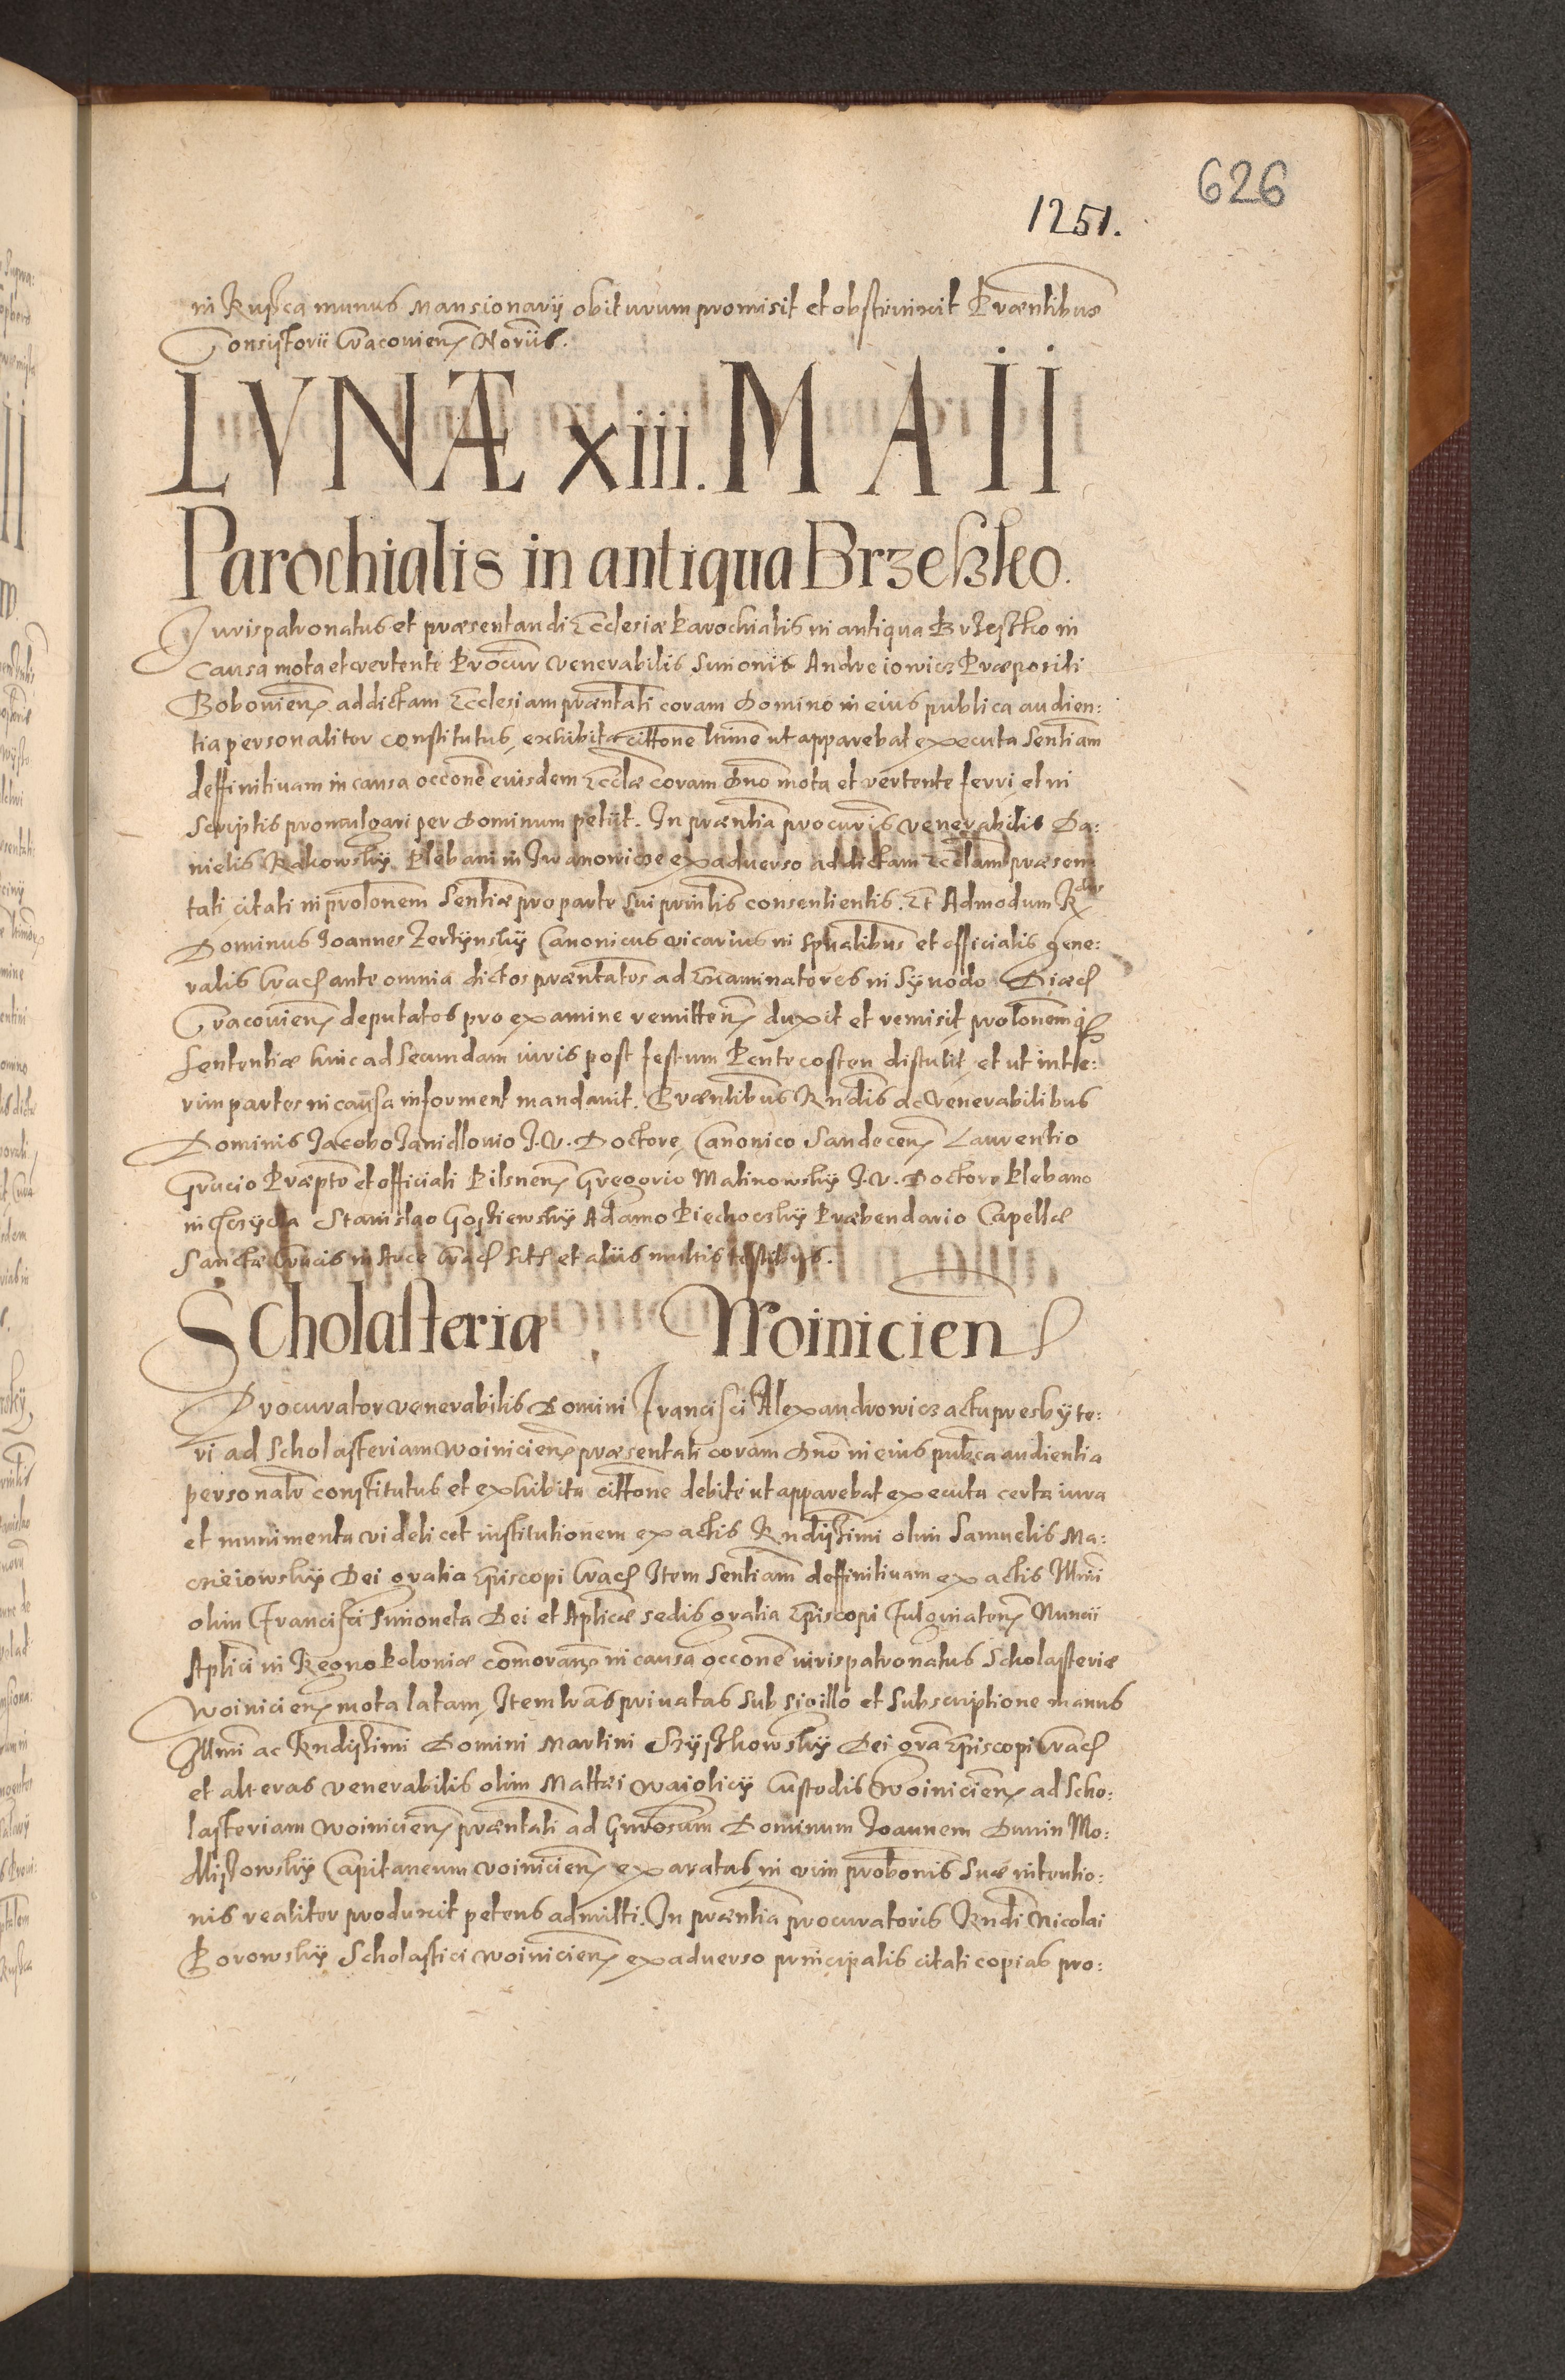 626
1251.
in Rusca munus Mansionarij obiturum promisit et obstrinxit Præntibus
Consistorii Cracovien Noriis.
LVNÆ xiii. MAII
Parochialis in antiqua Brzesko.
Jurispatronatus et præsentandi Ecclesiæ Parochialis in antiqua Brzesko in
causa mota et vertente Procur venerabilis Simonis Andreiowicz Præpositi
Bobovien ad dictam Ecclesiam præntati coram Domino in eius publica audien:
tia personaliter constitutus, exhibita cittone ltime ut apparebat executa Sentiam
deffinitivam in causa occone eiusdem Eccliæ coram Dno mota et vertente ferri et in
scriptis promulgari per Dominum petiit. In præntia procuris venerabilis Da:
nielis Rakowsky Plebani in Iwanowicze ex adverso ad dictam Eccliam præsen
tati citati in prolonem Sentiæ pro parte sui prinlis consentientis. Et Admodum R
Dominus Joannes Zerzynsky Canonicus vicarius in Sphalibus et officialis gene:
ralis Crac ante omnia dictos præntatos ad Examinatores in Synodo Diæc
Cracovien deputatos pro examine remitten duxit et remisit prolonem
Sententiæ hinc ad secundam iuris post festum Pentecosten distulit, et ut inte:
rim partes in causa informent mandavit. Præntibus Rndis ac Venerabilibus
Dominis Jacobo Janidlovio J. V. Doctore, Canonico Sandecen Laurentio
Grucio Præpto et officiali Pilsnen Gregorio Malinowsky J. V. Doctore Plebano
in Stanislao Goszewsky Adamo Piechocsky Præbendario Capellæ
Sanctæ Crucis in Arce Crac et aliis multis testibus.
Scholasteriæ Woinicien
Procurator venerabilis Domini Francisci Alexandrowicz actu presbyte:
ri ad Scholasteriam Woinicien præsentati coram Dno in eius publca audientia
personalr constitutus et exhibita cittone debite ut apparebat executa certa iura
et munimenta videlicet institutionem ex actis Rndissimi olim Samuelis Ma:
cieiowsky Dei gratia Episcopi Crac Item Sentiam deffinitivam ex actis Illmi
olim Francisci Simoneta Dei et Aplicæ sedis gratia Episcopi Fulginaten Nuncii
Aplici in Regno Poloniæ comoran in causa occone iurispatronatus Scholasteriæ
Woinicien mota latam, Item lras privatas sub sigillo et subscriptione manus
Illmi ac Rndissimi Domini Martini Szyszkowsky Dei gra Episcopi Crac
et alteras venerabilis olim Mattæi Custodis Woinicien ad Scho:
lasteriam Woinicien præntati ad Gnrosum Dominum Joannem Dunin Mo:
Capitaneum voinicien exaratas in vim probonis suæ intentio:
nis realiter produxit petens admitti. In præntia procuratoris Rndi Nicolai
Borowsky Scholastici Woinicien ex adverso principalis citati copias pro: